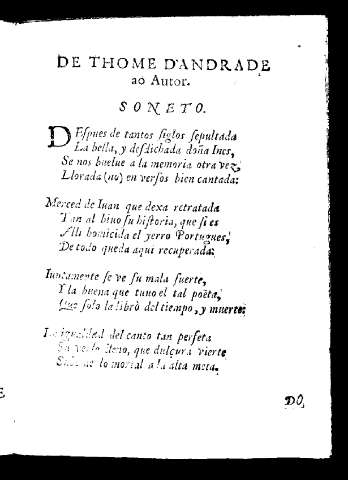 DE THOME D'ANDRADE
ao Autor.
SONETO.
DEspues de tantos siglos sepultada
La bella, y desdichada doña Ines,
Se nos buelue a la memoria otra vez,
Llorada (no) en versos bien cantada:
Merced de Iuan que dexa retratada
Tan al biuo su historia, que si es
Alli homicida el yerro Portugues,
De todo queda aqui recuperada:
Iuntamente se ve su mala suerte,
Y la buena que tuuo el tal poëta,
Que solo la librò del tiempo, y muerte:
La igualdad del canto tan perfeta
Su verso lleno, que dulçura vierte
Sube de lo mortal a la alta meta.
E
DO,